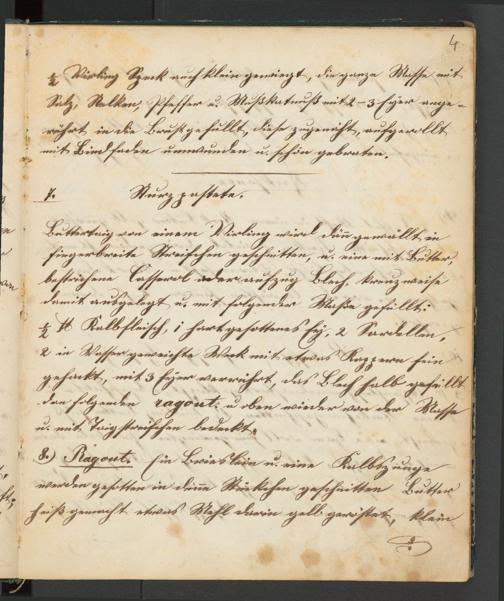 4
½ Vierling Speck auch klein gewiegt, die ganze Masse mit
Salz, Nelken, Pfeffer u. Mußkatnuß mit 2-3 Eyer ange-
rührt, in die Brust gefüllt, diese zugenäht, aufgerollt
mit Bindfaden umwunden u. schön gebraten.
7. Sturzpastete.
Butterteig von einem Vierling wird dünn gewällt in
fingerbreite Streifchen geschnitten, u. eine mit Butter,
bestrichene Casserol oder aufzug Blech kreuzweise
damit ausgelegt u. mit folgender Maße gefüllt:
½ ℔ Kalbfleisch, 1 hartgesottenes Ey, 2 Sardellen,
2 in Wasser geweichte Weck mit etwas Kappern fein
gehackt, mit 3 Eyer verrührt, das Blech halb gefüllt
dan folgenden ragout. u oben wieder von der Masse
u. mit Taigstreifchen bedeckt.
8.) Ragout. Ein Brieslein u. eine Kalbszunge
werden gesotten in dünne Stückchen geschnitten Butter
heiß gemacht etwas Mehl darin gelb geröstet, klein